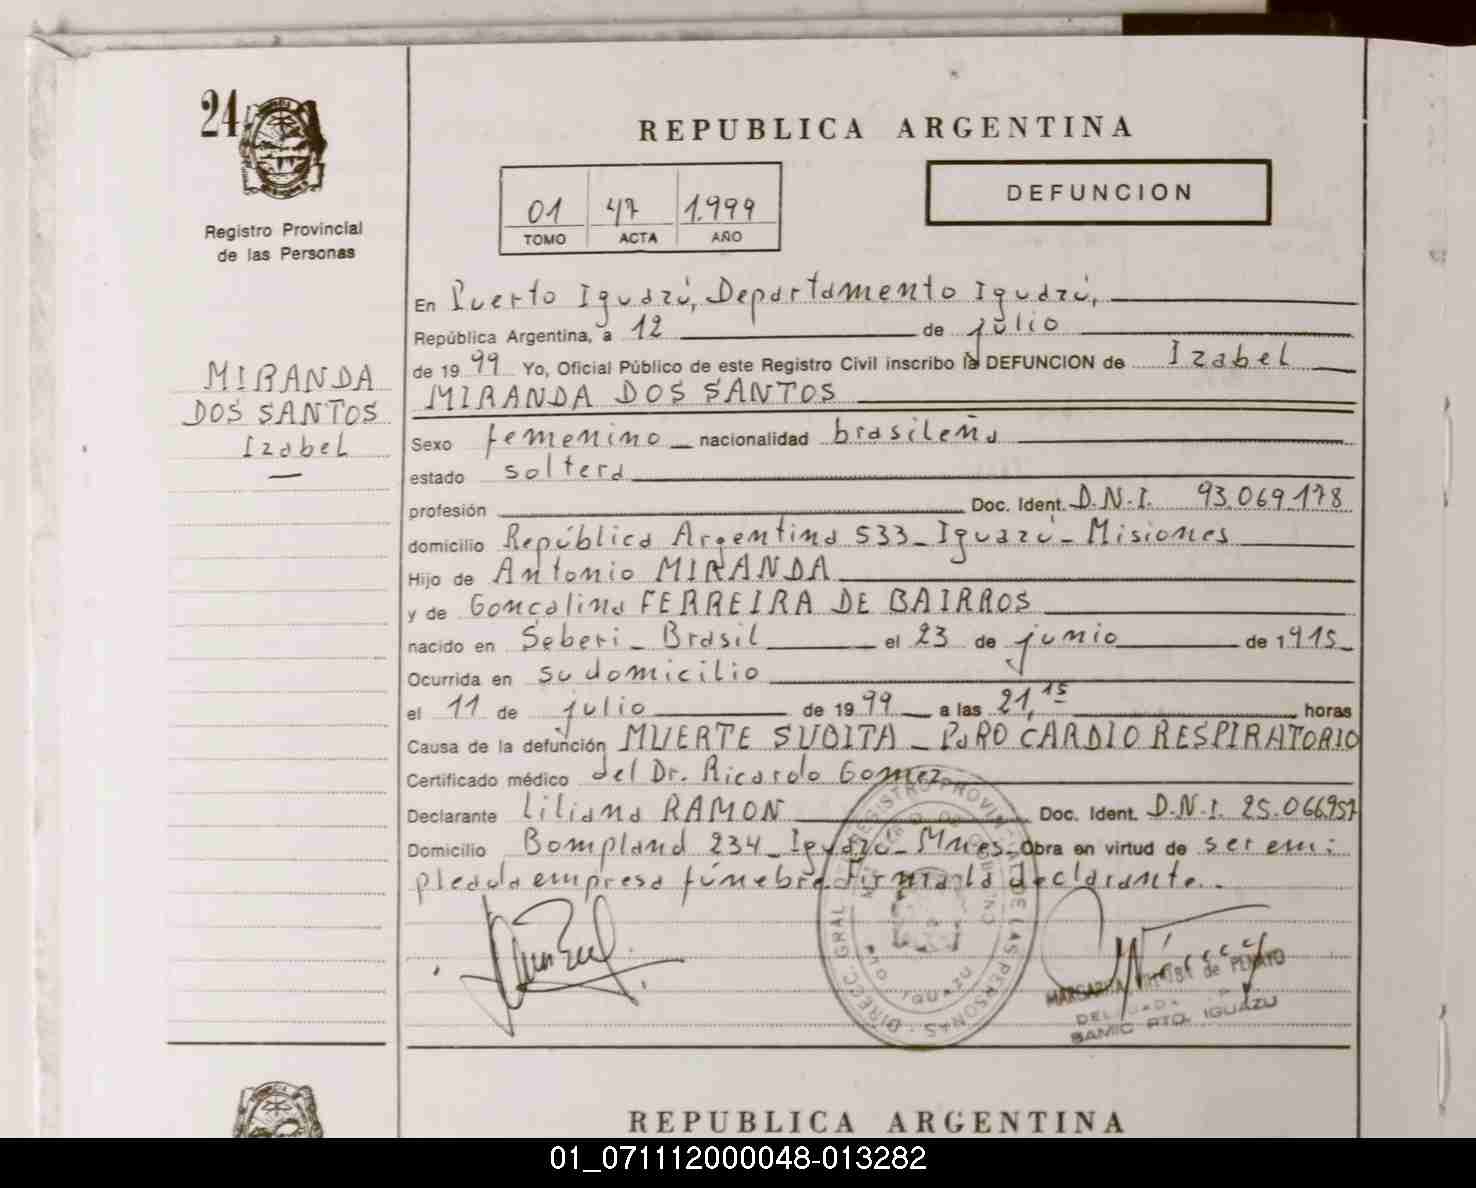 24
Registro Provincial
de las Personas
MIRANDA
DOS SANTOS
Izabel
REPUBLICA ARGENTINA
01 47 1.999
TOMO ACTA AÑO
DEFUNCION
En Puerto Iguazú, Departamento Iguazú,
República Argentina, a 12 de julio
de 1999 Yo, Oficial Público de este Registro Civil inscribo la DEFUNCION de Izabel
MIRANDA DOS SANTOS
Sexo femenino nacionalidad brasileña
estado soltera
profesión Doc. Ident. D.N.I. 93.069.178
domicilio República Argentina 533_Iguazú_Misiones
Hijo de Antonio MIRANDA
y de Goncalina FERREIRA DE BAIRROS
nacido en Seberi_Brasil el 23 de junio de 1915
Ocurrida en su domicilio
el 11 de julio de 1999 a las 21,15 horas
Causa de la defunción MUERTE SUBITA _ PARO CARDIO RESPIRATORIO
Certificado médico del Dr. Ricardo Gomez
Declarante Liliana RAMON Doc. Ident. D.N.I. 25.066.957
Domicilio Bompland 234_Iguazú_Mnes. Obra en virtud de ser em
pleada empresa fúnebre. Firma la declarante.
DIRECC. GRAL. REGISTRO PROVINCIAL DE LAS PERSONAS
PTO IGUAZU
MARGARITA de PENAYO
SAMIC PTO. IGUAZU
REPUBLICA ARGENTINA
01_071112000048-013282